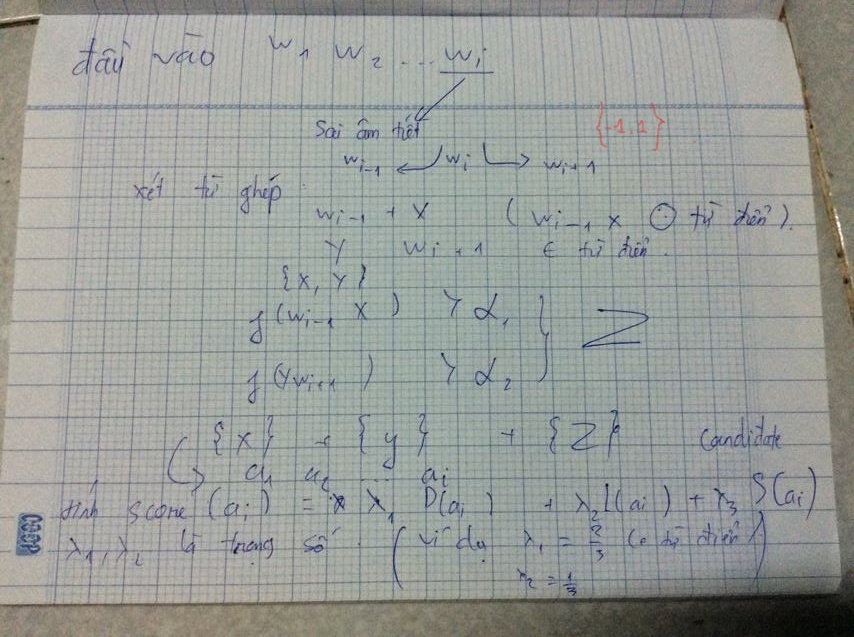 đầu vào w1 w2 ... wi
Sai âm tiết
{-1,1}
wi-1 wi wi+1
xét từ ghép
wi-1 + X (wi-1 X ∈ từ điển).
Y wi+1 ∈ từ điển.
{X, Y}
f(wi-1 X) > α1
Z
f(Ywi+1) > α2
{x} + {y} + {Z} Candidate
a1 a2 ... ai
tính score(ai) = λ1 D(ai) + λ2 L(ai) + λ3 S(ai)
λ1, λ2 là trọng số. (ví dụ λ1 = 2/3 (có từ điển)
λ2 = 1/3